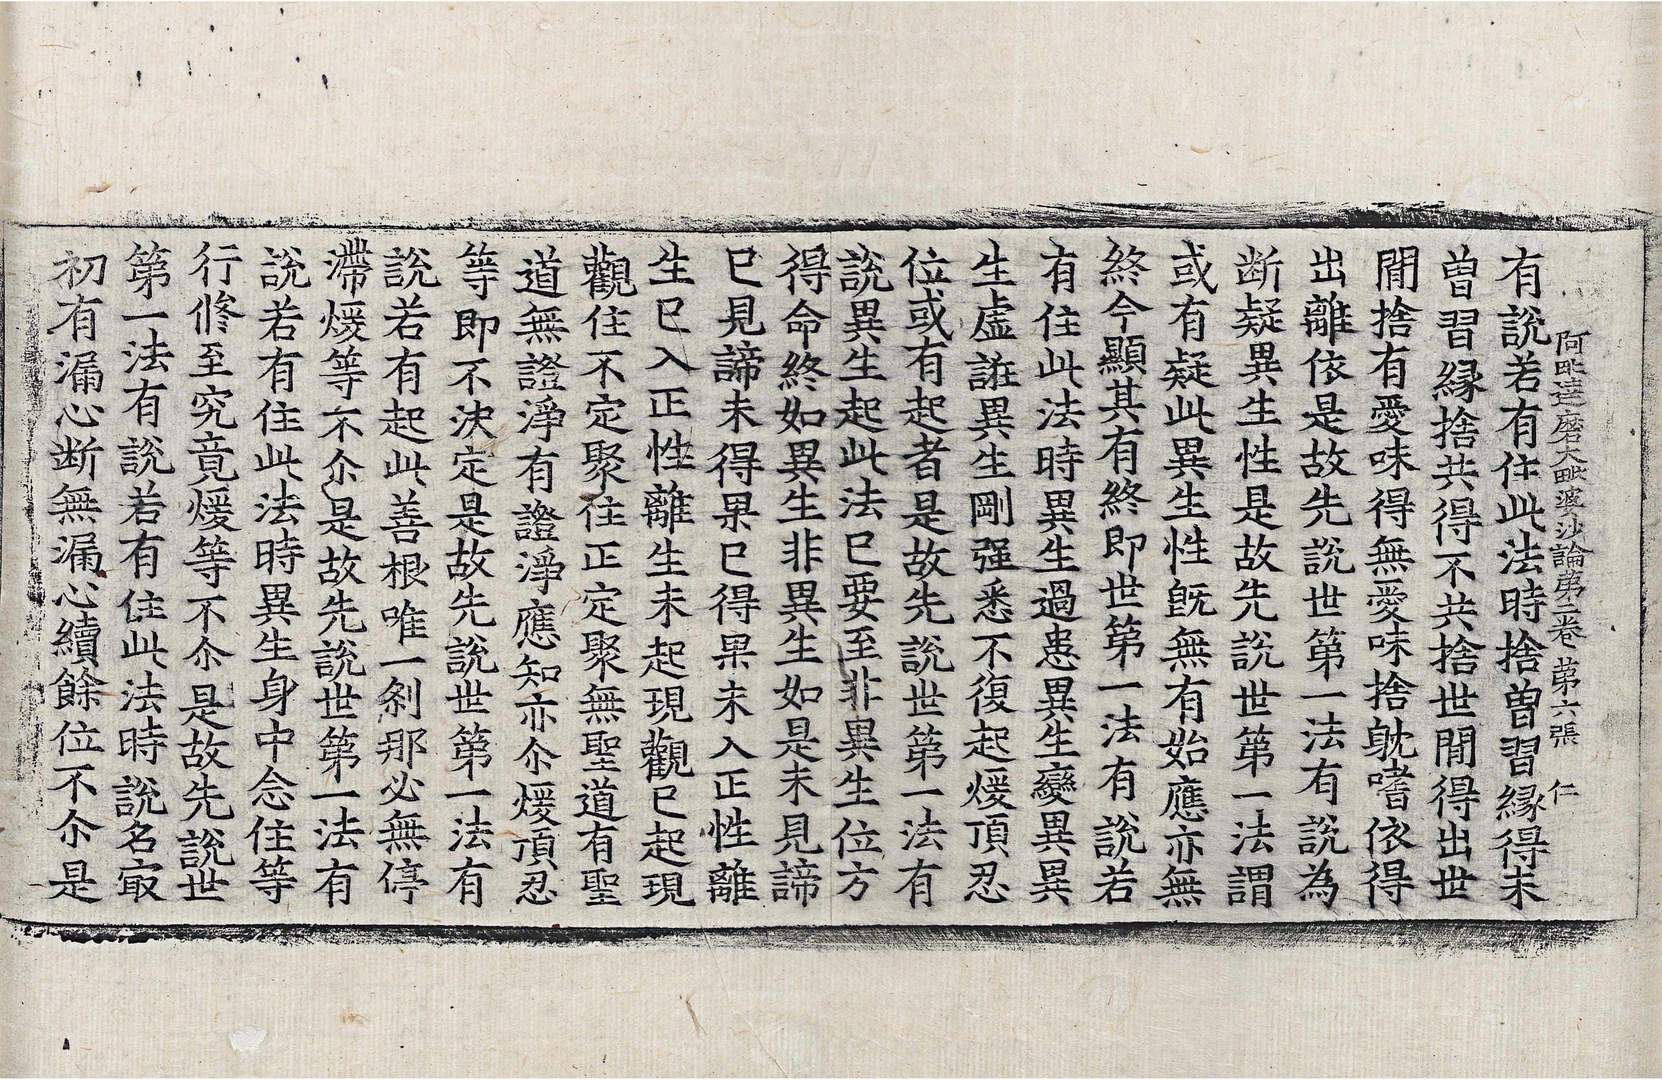 阿毗達磨大毗婆沙論第二卷 第六張 仁
有說若有住此法時捨曾習緣得未
曾習緣捨共得不共捨世閒得出世
閒捨有愛味得無愛味捨躭嗜依得
出離依是故先說世第一法有說為
断疑異生性是故先說世第一法謂
或有疑此異生性旣無有始應亦無
終今顯其有終即世第一法有說若
有住此法時異生過患異生變異異
生虛誑異生剛强悉不復起煖頂忍
位或有起者是故先說世第一法有
說異生起此法已要至非異生位方
得命終如異生非異生如是未見諦
已見諦未得果已得果未入正性離
生已入正性離生未起現觀已起現
觀住不定聚住正定聚無聖道有聖
道無證淨有證淨應知亦尒煖頂忍
等即不決定是故先說世第一法有
說若有起此善根唯一剎那必無停
滯煖等不尒是故先說世第一法有
說若有住此法時異生身中念住等
行修至究竟煖等不尒是故先說世
第一法有說若有住此法時說名㝡
初有漏心断無漏心續餘位不尒是